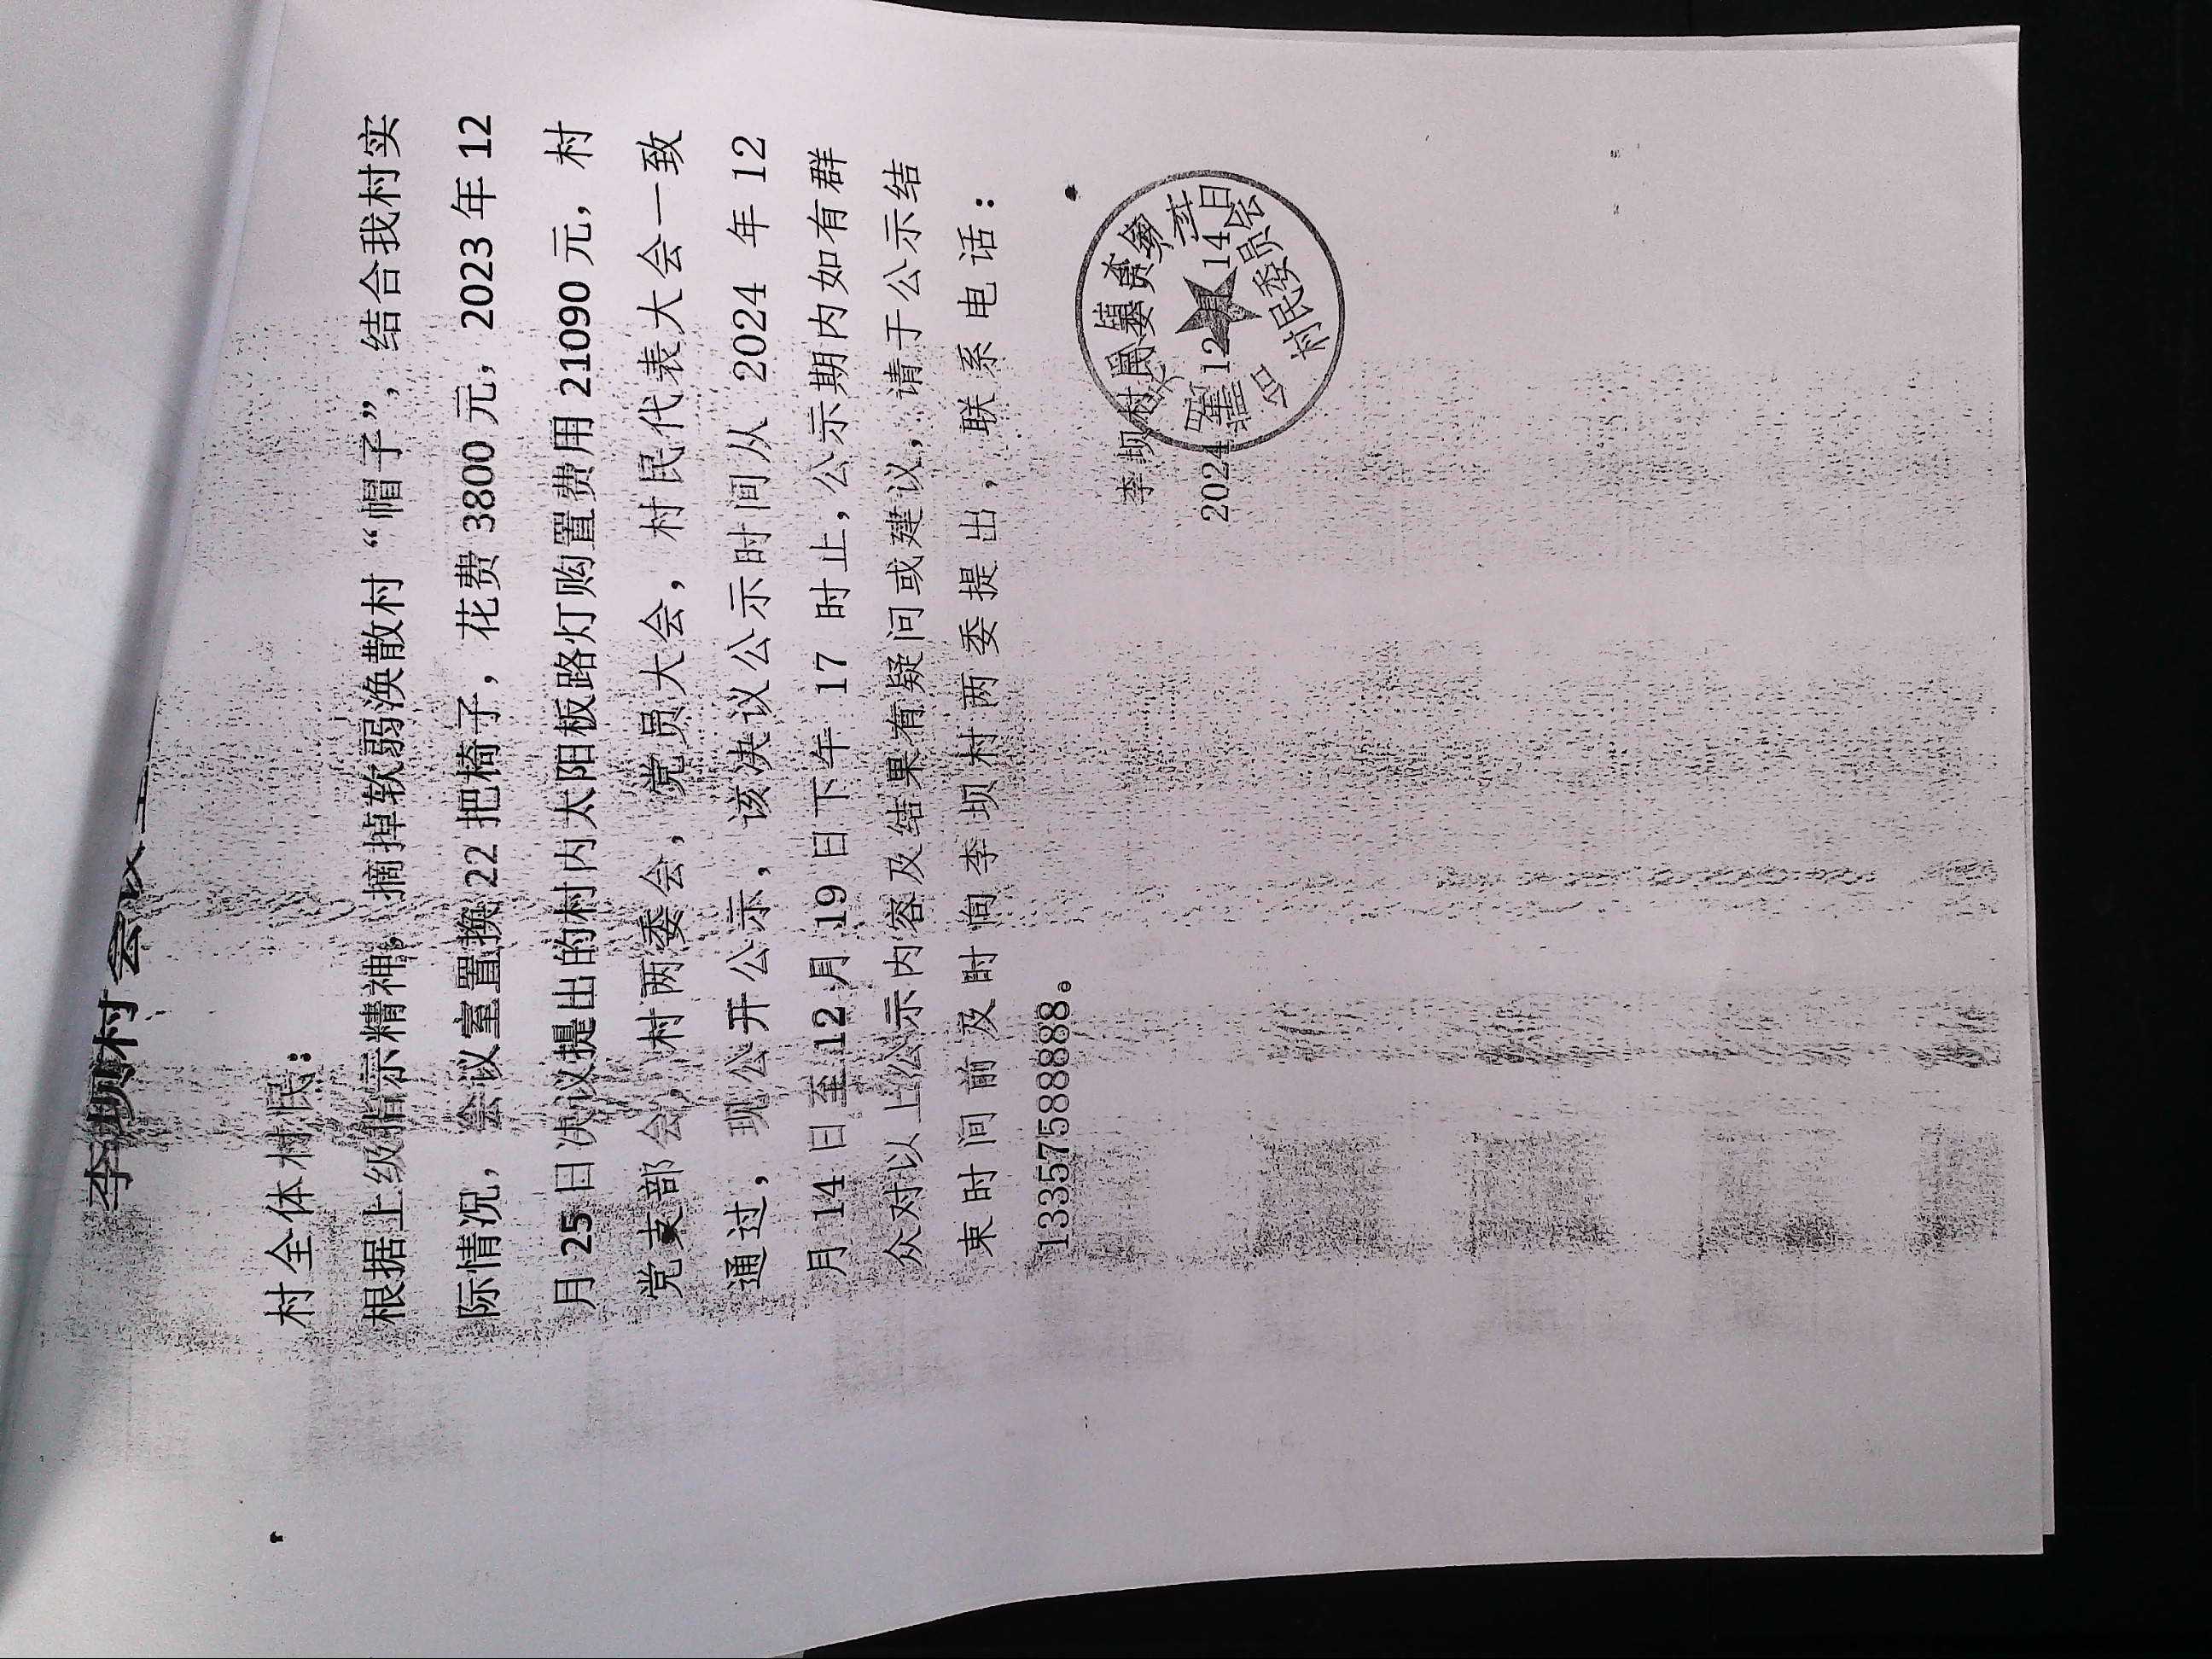 李坝村会议
村全体村民：
根据上级指示精神，摘掉软弱涣散村“帽子”，结合我村实
际情况，会议室置换 22 把椅子，花费 3800 元，2023 年 12
月 25 日决议提出的村内太阳板路灯购置费用 21090 元，村
党支部会，村两委会，党员大会，村民代表大会一致
通过，现公开公示，该决议公示时间从 2024 年 12
月 14 日至 12 月 19 日下午 17 时止，公示期内如有群
众对以上公示内容及结果有疑问或建议，请于公示结
束时间前及时向李坝村两委提出，联系电话：
13357588888。
李坝村民委
2024 年 12 月 14 日
村民委员会